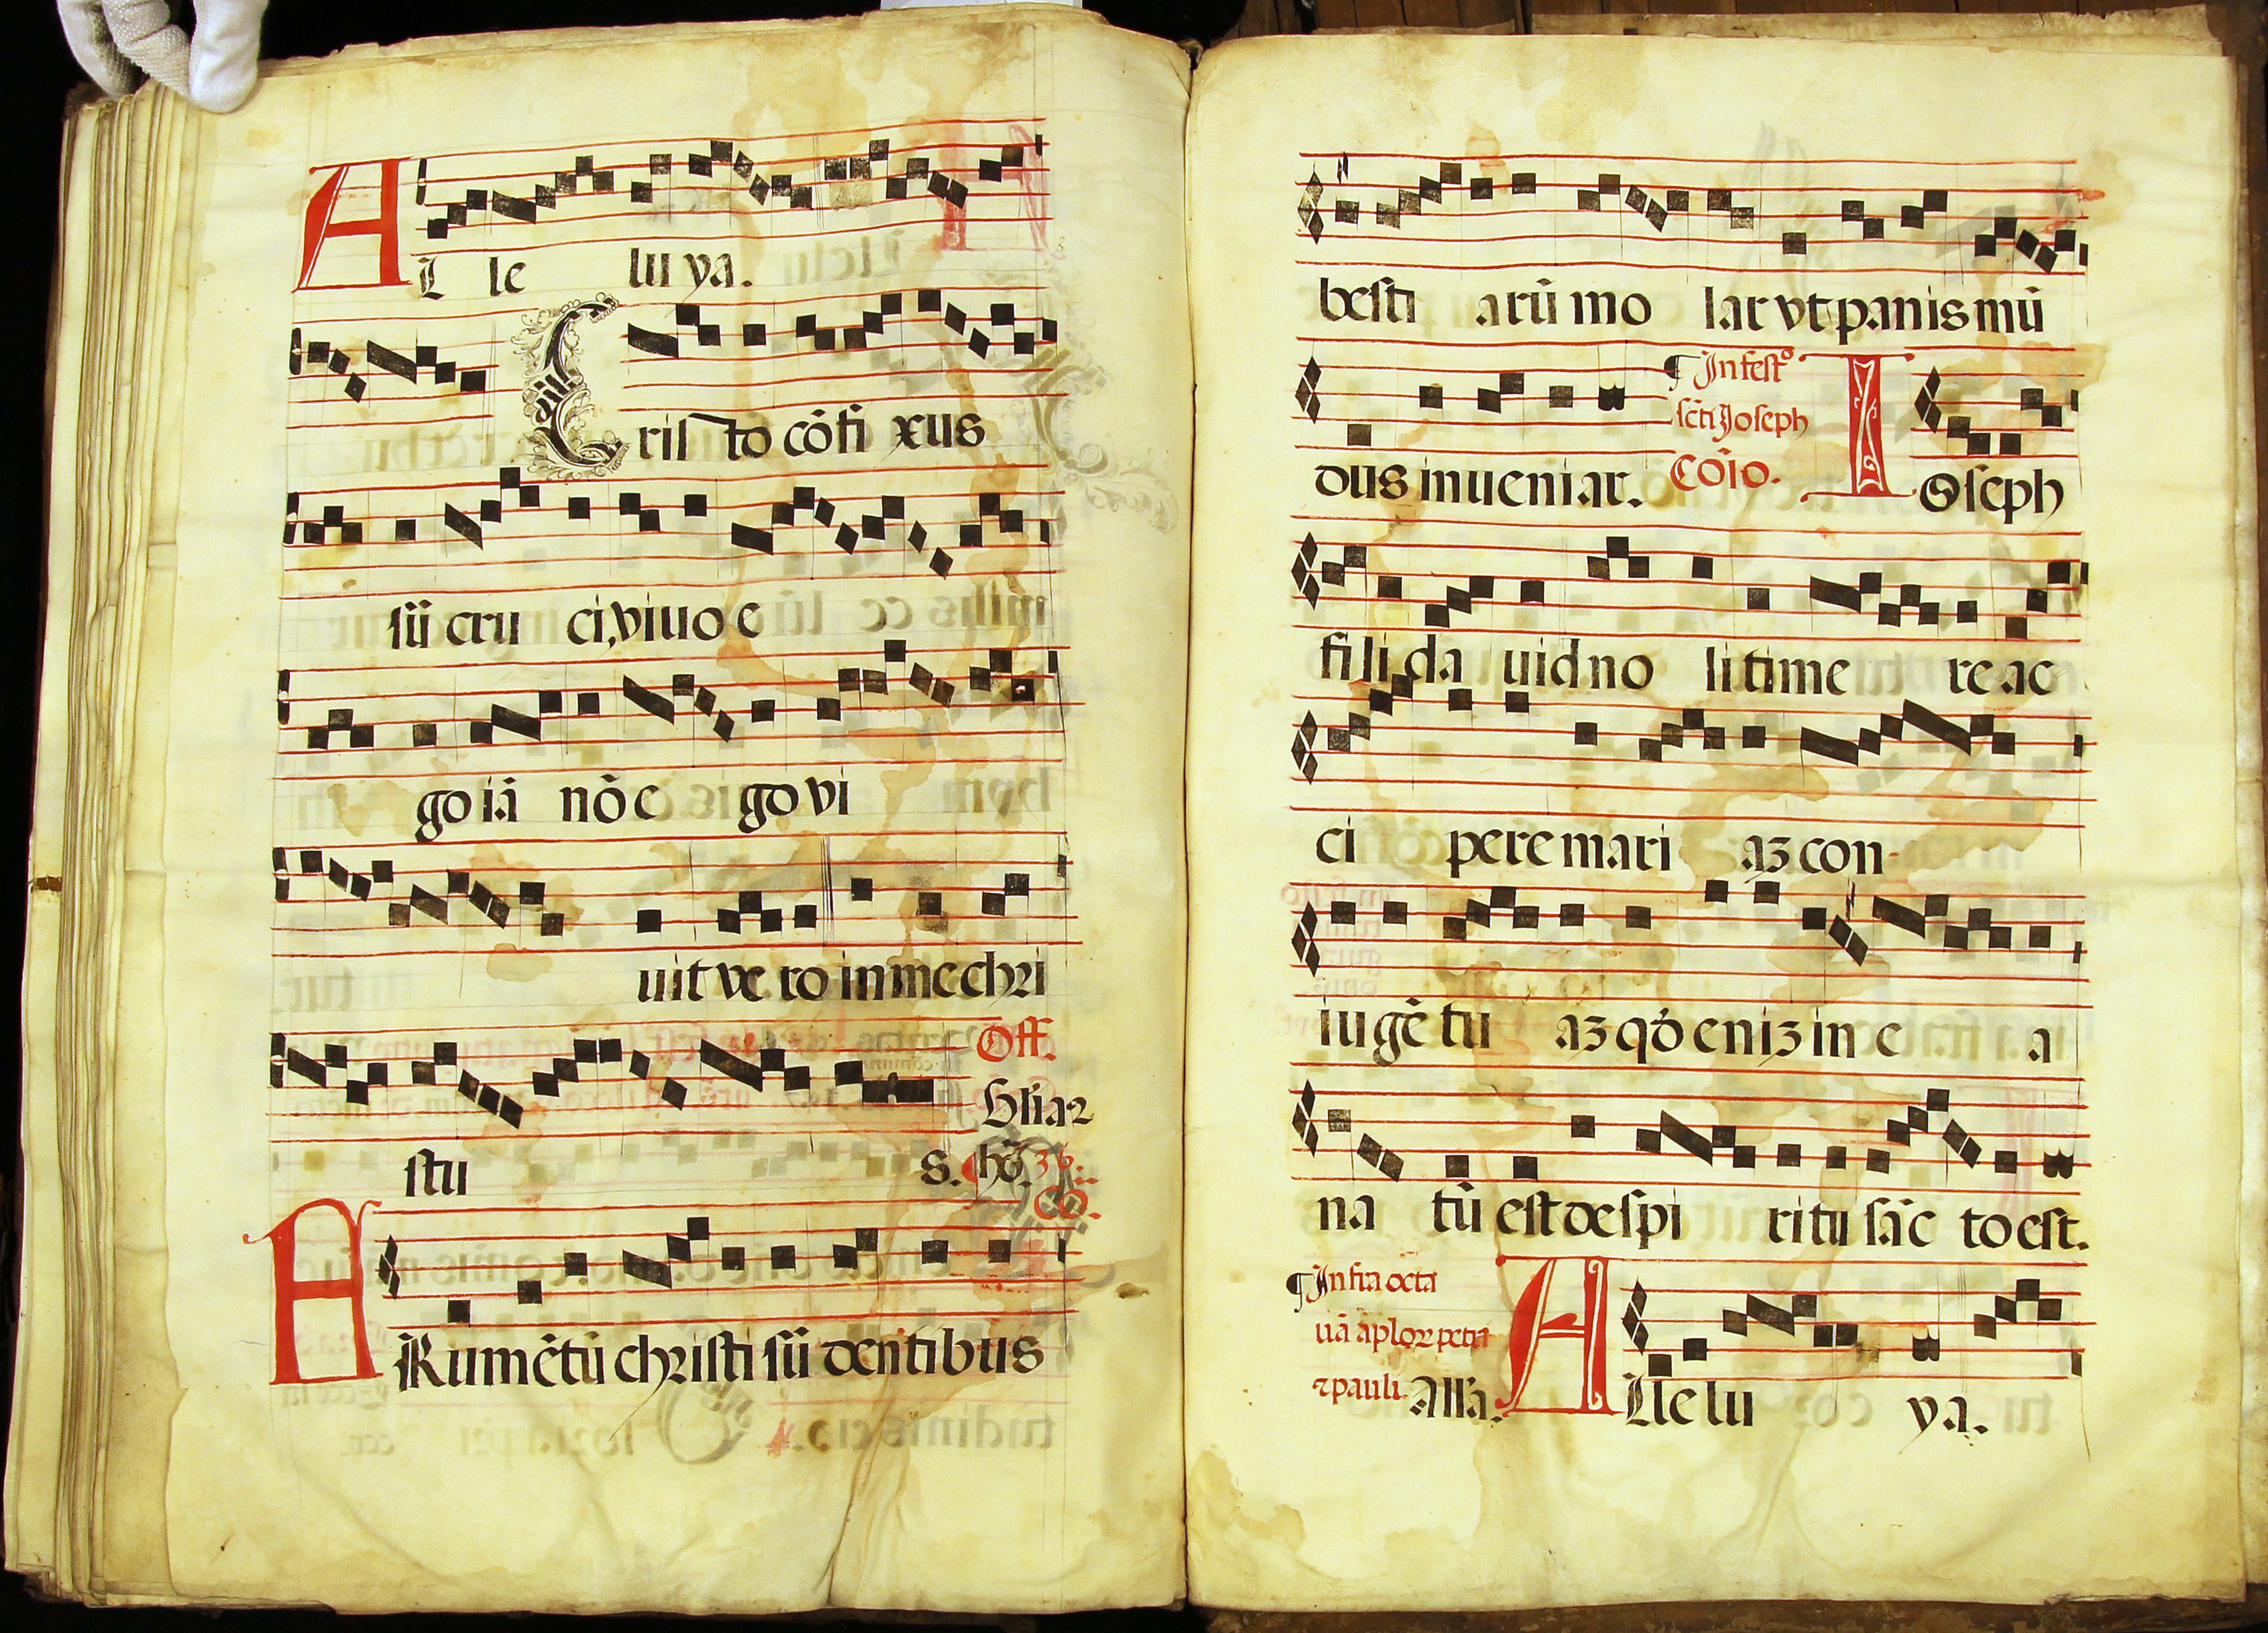 AL le lu ya.
Cristo cōfi xus
sū cru ci, viuo e
go iā nō e go vi
uit ve ro in me chri
Off.
stu s. hō. 36.
Cō.
FRumētū christi sū dentibus
besti arū mo lar vt panis mū
dus inueniar.
¶ In festo
scti Joseph
Cōio.
IOseph
fili da uid no li time re ac
ci pere mari aʒ con-
iugē tu aʒ qđ eniʒ in e a
na tū est de spi ritu sāc to est.
¶ Infra octa
uā aplorꝝ petri
⁊ pauli. All'a.
ALle lu ya.